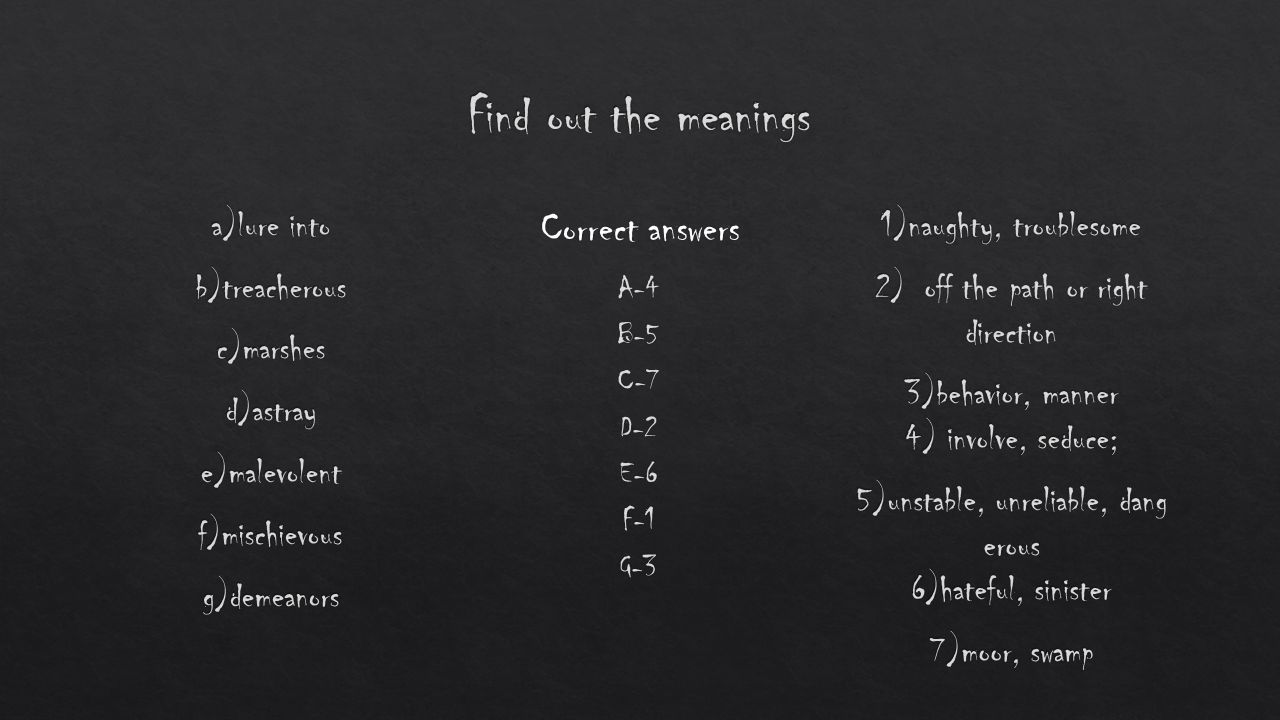 Find out the meanings
a)lure into
b)treacherous
c)marshes
d)astray
e)malevolent
f)mischievous
g)demeanors
Correct answers
A-4
B-5
C-7
D-2
E-6
F-1
G-3
1)naughty, troublesome
2) off the path or right
direction
3)behavior, manner
4) involve, seduce;
5)unstable, unreliable, dang
erous
6)hateful, sinister
7)moor, swamp